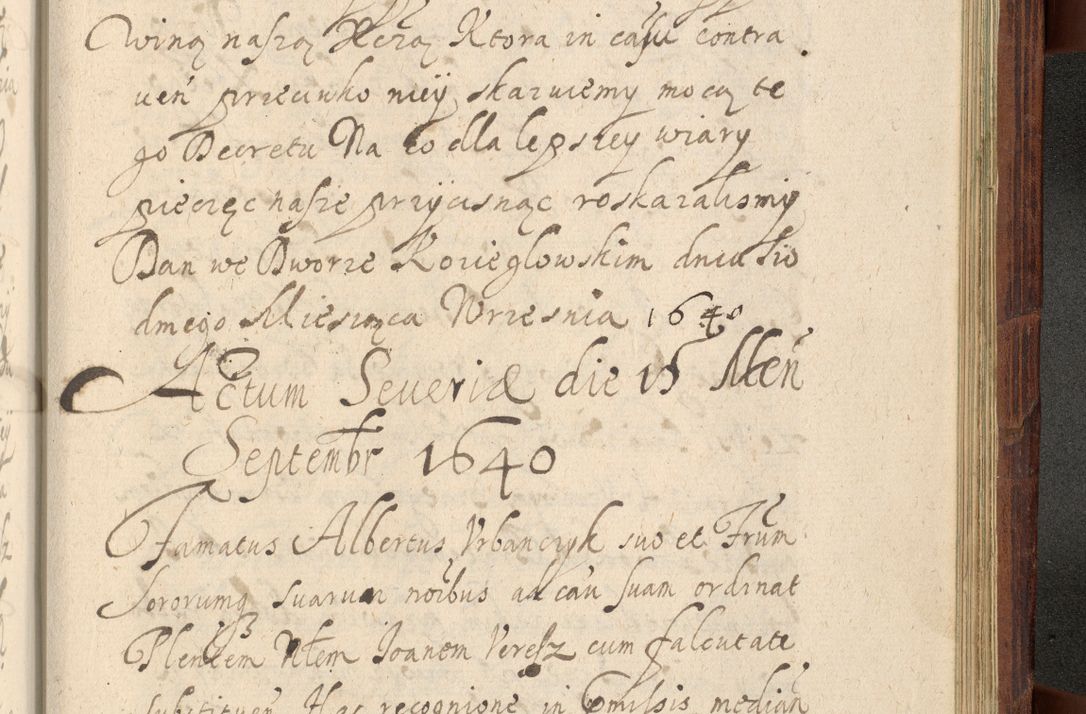 winą naszą Xczą Ktora in casu contra
uen̄ przeciwko niey skazuiemy mocą te
go Decretu Na co dla lepszey wiary
pieczęc nasze przycisnąc roskazalismy
Dan we Dworze Kozieglowskim dnia sio
dmego Miesiąca Wrzesnia 1640
Actum Seueriæ die 15 Men̄
Septembr 1640
Famatus Albertus Vrbanczyk suo et Frum
Sororumq suarum noībus ad cau̅ suam ordinat
Plentem Nlem Joanem Veresz cum falcutate
substituen̄ Hac recognione in Cmissis median̄